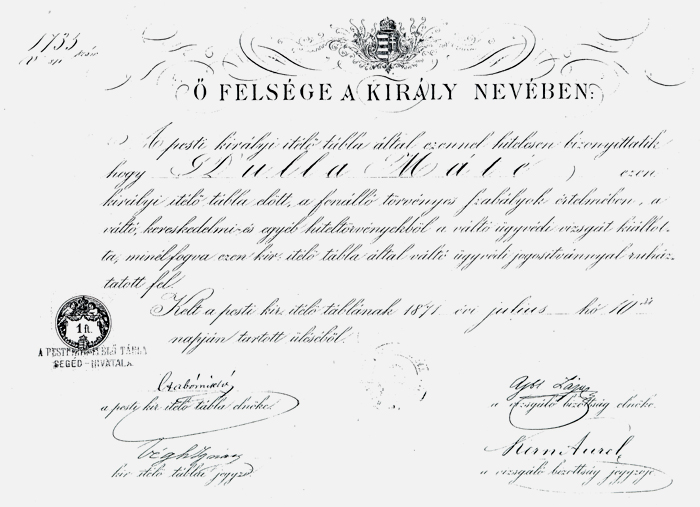 1733
Ő FELSÉGE A KIRÁLY NEVÉBEN:
A pesti királyi itélő tábla által ezennel hitelesen bizonyittatik
hogy Dulla Máté ezen
királyi itélő tábla előtt, a fenálló törvényes szabályok értelmében, a
váltó, kereskedelmi-és egyéb hiteltörvényekből a váltó ügyvédi vizsgát kiállot-
ta, minélfogva ezen kir. itélő tábla által váltó ügyvédi jogositvánnyal ruház-
tatott fel.
Kelt a pesti kir. itélő táblának 1871 évi julius hó 10
napján tartott üléséből.
1 ft.
A PESTI TÁBLA
SEGÉD-HIVATALA.
a pesti kir. itélő tábla elnöke.
a vizsgáló bizottság elnöke.
Végh Ignácz
kir. itélő táblai jegyző
Kern Aurél
a vizsgáló bizottság jegyzője